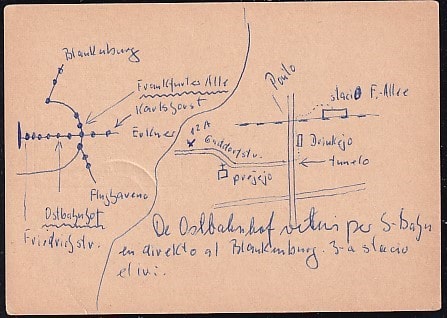 Blankenburg
Frankfurter Allee
Karlshorst
Erkner
Flughaveno
Ostbahnhof
Friedrichstr.
12A
Ponto
stacio F.-Allee
Drinkejo
tunelo
preĝejo
De Ostbahnhof per S-Bahn
en direkto al Blankenburg. 3-a stacio
eliri.